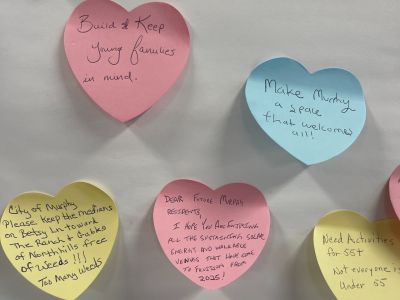 Build & Keep
young families
in mind.
Make Murphy
a space
that welcomes
all!
City of Murphy
Please Keep the medians
on Betsy Ln toward
The Ranch & Gables
of North hills free
of weeds !!!
Too Many Weeds
DEAR FUTURE MURPHY
RESIDENTS,
I HOPE YOU ARE ENJOYING
ALL THE SUSTAINING SOLAR
ENERGY AND WALKABLE
VENUES THAT HAVE COME
TO FRUITION FROM
2025!
Need Activities
for 55+
Not everyone is
Under 55